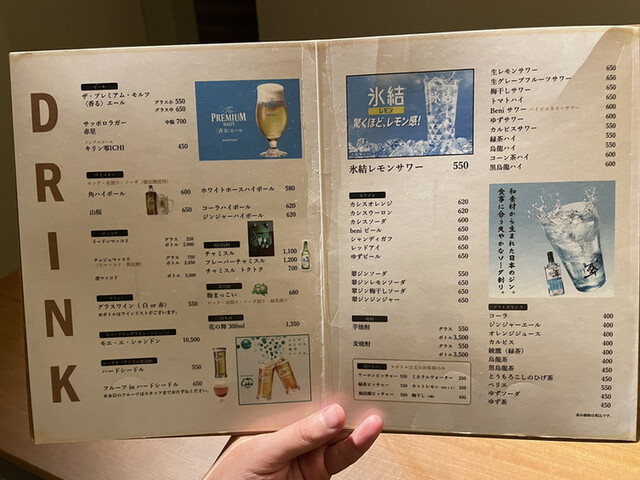 DRINK
ビール
ザ・プレミアム・モルツ
〈香る〉エール グラス小 550
グラス中 650
サッポロラガー 中瓶 700
赤星
ノンアルコール
キリン零ICHI 450
The
PREMIUM
MALT'S
〈香る〉エール
ウイスキー
角ハイボール 600
山桜 650
ホワイトホースハイボール 580
コーラハイボール 620
ジンジャーハイボール 620
マッコリ
イードンマッコリ グラス 550
チャミスル 1,100
フレーバーチャミスル 1,200
チャミスル トクトク 700
梅まっこい 680
ワイン
グラスワイン ( 白 or 赤 ) 550
※ボトルはワインリストがございます。
花の舞 300ml 1,350
モエ・エ・シャンドン 10,500
ハードシードル 550
フルーツ in ハードシードル 650
※本日のフルーツはスタッフまでおたずねください。
氷結
レモン
驚くほど、レモン感!
氷結レモンサワー 550
カクテル
カシスオレンジ 620
カシスウーロン 620
カシスソーダ 600
beni ビール 650
シャンディガフ 650
レッドアイ 650
ゆずビール 650
翠ジンソーダ 550
翠ジンレモンソーダ 550
翠ジン梅干しソーダ 650
翠ジンジンジャー 650
焼酎
芋焼酎 グラス 550
ボトル 3,500
麦焼酎 グラス 550
ボトル 3,500
※ボトル注文のお客様のみ
ウーロンピッチャー 550
ミネラルウォーター 350
緑茶ピッチャー 550
カットレモン 350
梅干し 400
生レモンサワー 650
生グレープフルーツサワー 650
梅干しサワー 650
トマトハイ 650
Beni サワー 650
ゆずサワー 650
カルピスサワー 650
緑茶ハイ 600
烏龍ハイ 600
コーン茶ハイ 600
黒烏龍ハイ 650
和素材から生まれた日本のジン。
食事に合う爽やかなソーダ割り。
翠
ソフトドリンク
コーラ 400
ジンジャーエール 400
オレンジジュース 400
カルピス 400
綾鷹（緑茶） 400
烏龍茶 400
黒烏龍茶 450
とうもろこしのひげ茶 450
ペリエ 450
ゆずソーダ 450
ゆず茶 450
表示価格は税込です。